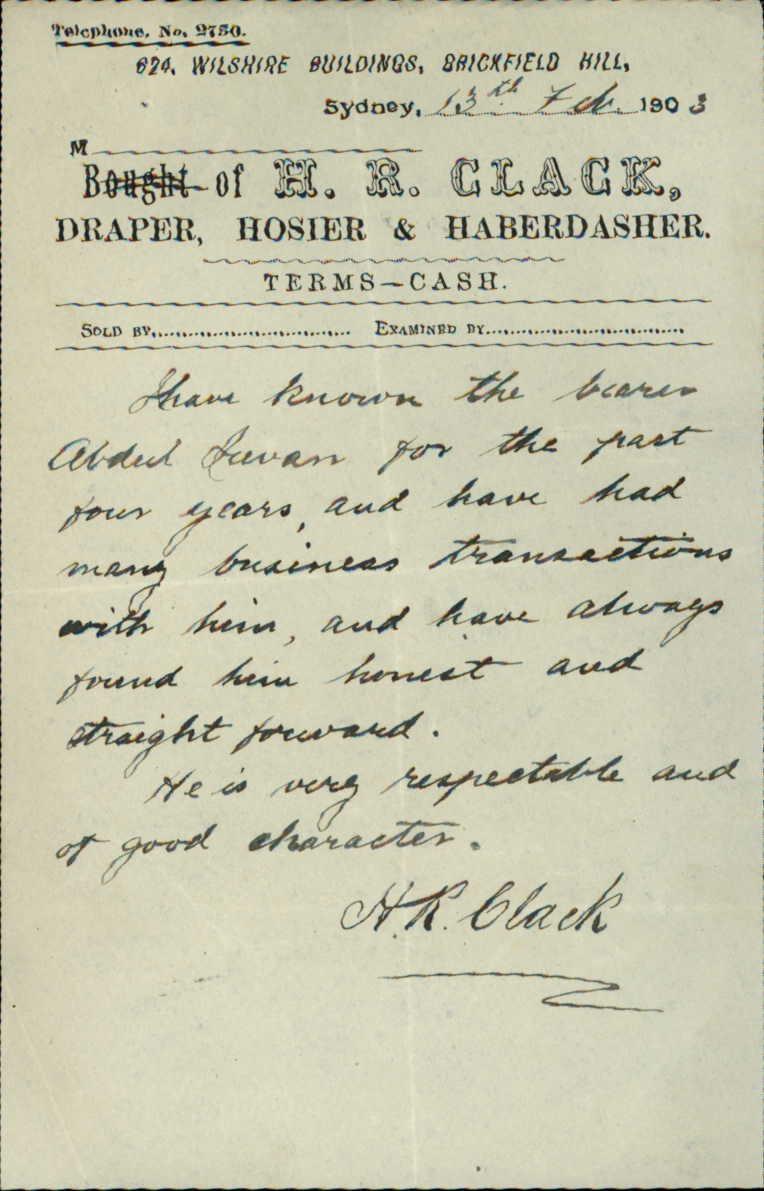 Telephone, No. 2750.
624, WILSHIRE BUILDINGS, BRICKFIELD HILL,
Sydney, 13th Feb. 1903
M
Bought of H. R. CLACK,
DRAPER, HOSIER & HABERDASHER.
TERMS—CASH.
SOLD BY EXAMINED BY
I have known the bearer
Abdul for the past
four years, and have had
many business transactions
with him, and have always
found him honest and
straight forward.
He is very respectable and
of good character.
H.R. Clack